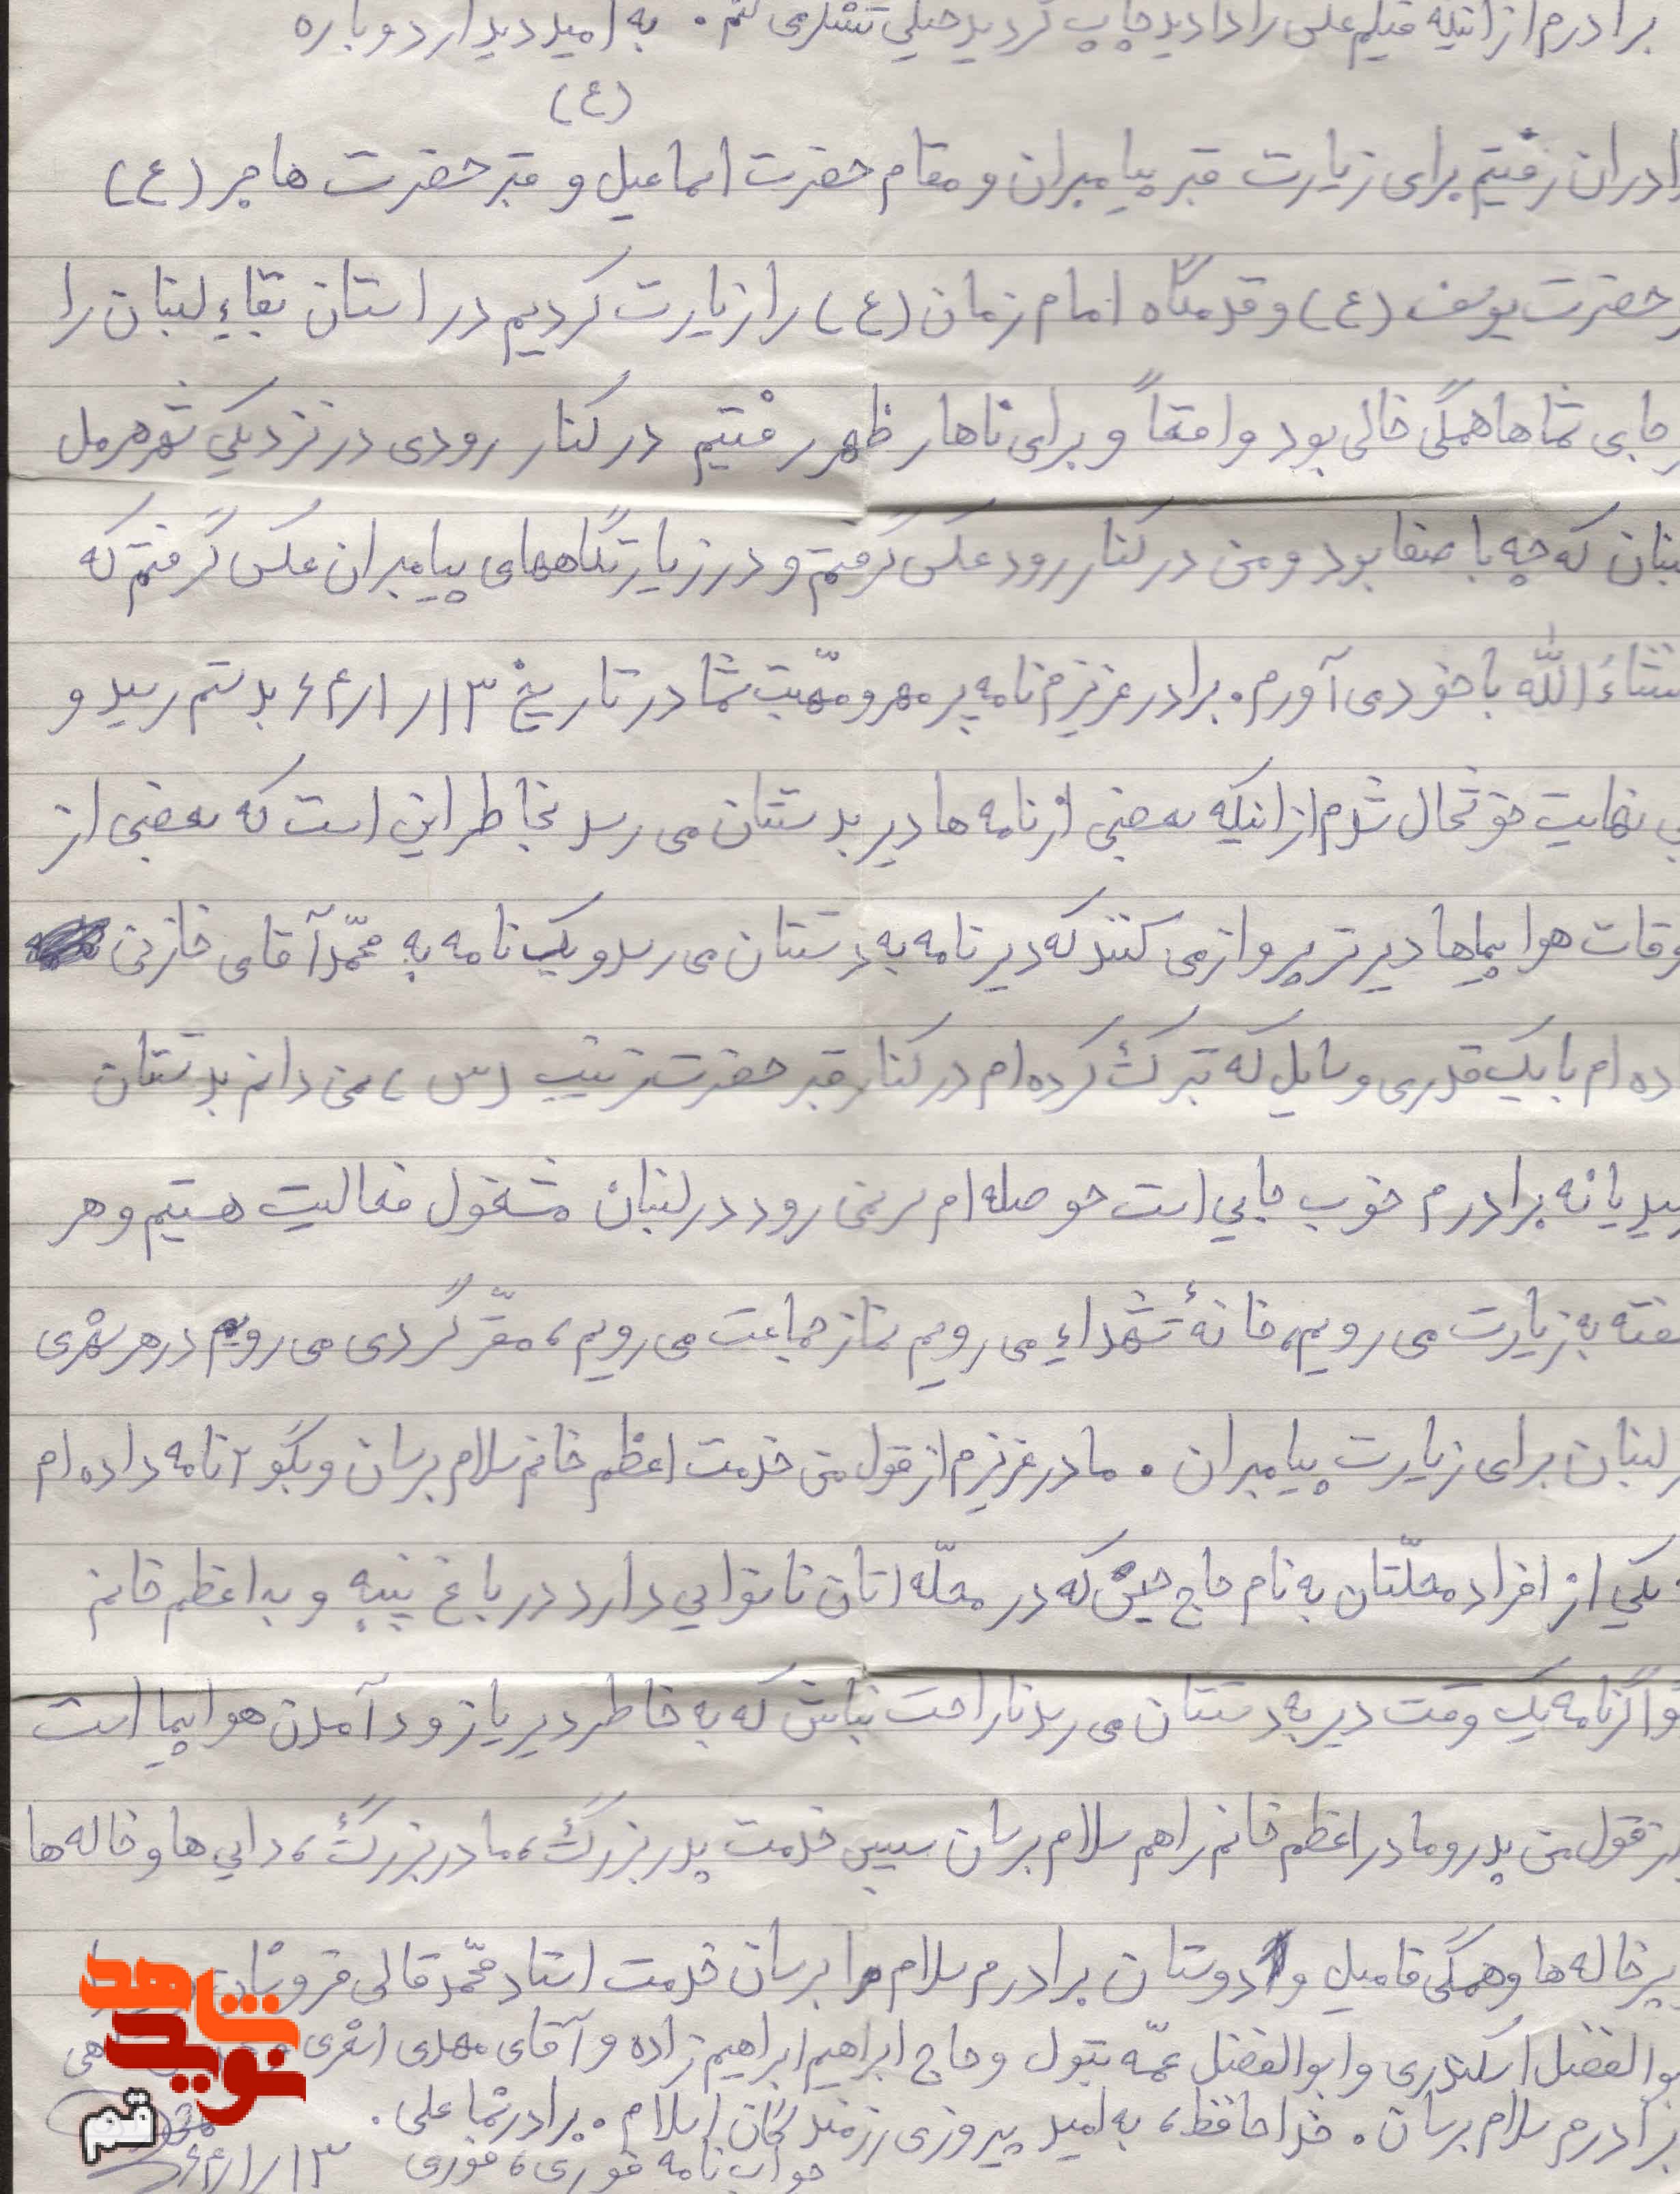 برادرم از اینکه فیلم علی را دادید چاپ کردید خیلی تشکر می کنم. به امید دیدار دوباره
(ع)
ادران رفتیم برای زیارت قبر پیامبران و مقام حضرت اسماعیل و قبر حضرت هاجر (ع)
حضرت یوسف (ع) و قدمگاه امام زمان (ع) را زیارت کردیم در استان بقاء لبنان را
جای شماها همگی خالی بود واقعاً و برای ناهار ظهر رفتیم در کنار رودی در نزدیکی شهر هرمل
بنان که چه با صفا بود و من در کنار رود عکس گرفتم و در زیارتگاههای پیامبران عکس گرفتم که
شاءالله با خود می آورم. برادر عزیزم نامه پر مهر و محبّت شما در تاریخ ۶۴/۱/۱۳ بدستم رسید و
بی نهایت خوشحال شدم از اینکه بعضی از نامه ها دیر بدستتان می رسد بخاطر این است که بعضی از
وقات هواپیماها دیرتر پرواز می کنند که دیر نامه به دستتان می رسد و یک نامه به محمّد آقای خازنی
ده ام با یک قدری وسایل که تبرک کرده ام در کنار قبر حضرت زینب (س) نمی دانم بدستتان
سید یا نه برادرم خوب جایی است حوصله ام سر نمی رود در لبنان مشغول فعالیت هستیم و هر
فته به زیارت می رویم، خانهٔ شهداء می رویم نماز جماعت می رویم، مقرّ گردی می رویم در هر شهری
لبنان برای زیارت پیامبران. مادر عزیزم از قول من خدمت اعظم خانم سلام برسان و بگو ۲ نامه داده ام
یکی از افراد محلّتان به نام حاج حسن که در محلّه اتان نانوایی دارد در باغ پنبه و به اعظم خانم
و اگر نامه یک وقت دیر به دستتان می رسد ناراحت نباش که به خاطر دیر یا زود آمدن هواپیما است
از قول من پدر و مادر اعظم خانم را هم سلام برسان سپس خدمت پدربزرگ، مادربزرگ، دایی ها و خاله ها
پسرخاله ها و همگی فامیل و دوستان برادرم سلام مرا برسان خدمت استاد محمّد قالی فروشان
بوالفضل اسکندری و ابوالفضل عمّه بتول و حاج ابراهیم ابراهیم زاده و آقای مهدی اشعری
برادرم سلام برسان. خداحافظ، به امید پیروزی رزمندگان اسلام. برادر شما علی.
جواب نامه فوری، فوری ۶۴/۱/۱۳
نوید شاهد
قم